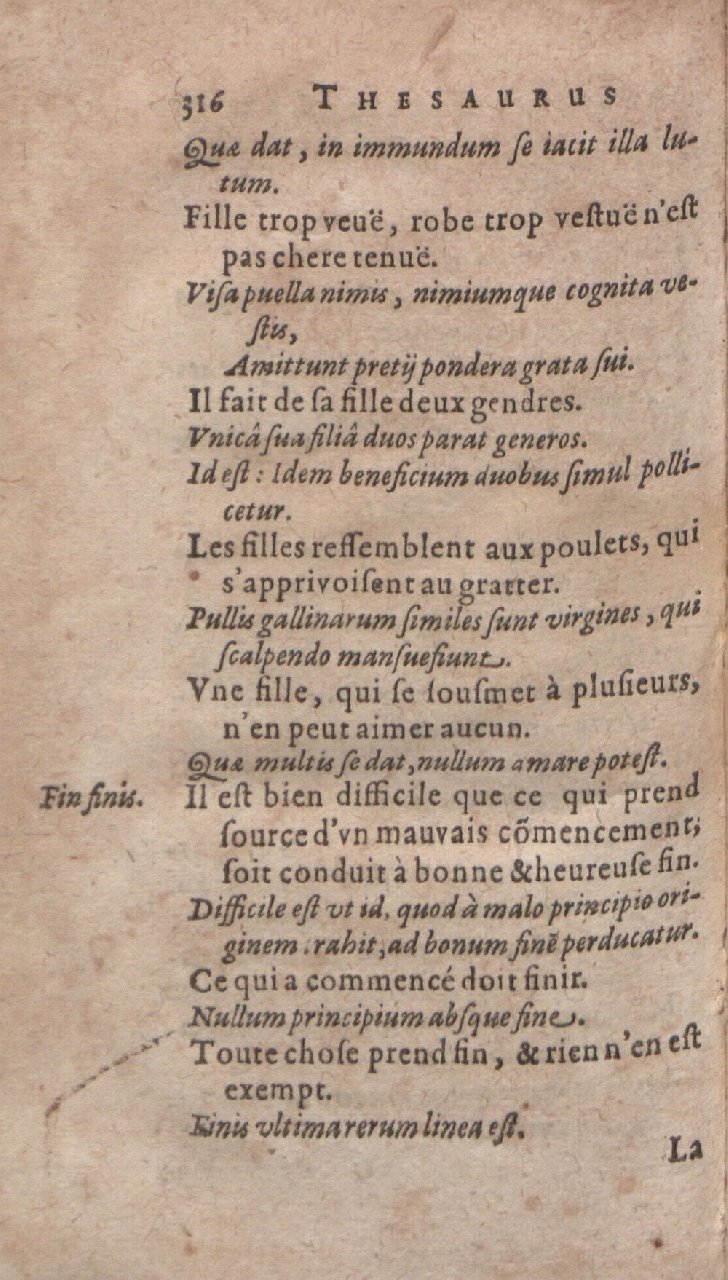 316 THESAURUS
Quæ dat, in immundum ſe iacit illa lu-
tum.
Fille trop veuë, robe trop veſtuë n'eſt
pas chere tenuë.
Viſa puella nimis, nimiumque cognita ve-
ſtis,
Amittunt pretij pondera grata ſui.
Il fait de ſa fille deux gendres.
Vnicâ ſua filiâ duos parat generos.
Id eſt : Idem beneficium duobus ſimul polli-
cetur.
Les filles reſſemblent aux poulets, qui
s'apprivoiſent au gratter.
Pullis gallinarum ſimiles ſunt virgines, qui
ſcalpendo manſuefiunt.
Vne fille, qui ſe ſouſmet à pluſieurs,
n'en peut aimer aucun.
Quæ multis ſe dat, nullum amare poteſt.
Fin finis. Il eſt bien difficile que ce qui prend
ſource d'vn mauvais cõmencement;
ſoit conduit à bonne & heureuſe fin.
Difficile eſt vt id, quod à malo principio ori-
ginem trahit, ad bonum finẽ perducatur.
Ce qui a commencé doit finir.
Nullum principium abſque fine.
Toute choſe prend fin, & rien n'en eſt
exempt.
Finis vltima rerum linea eſt.
La